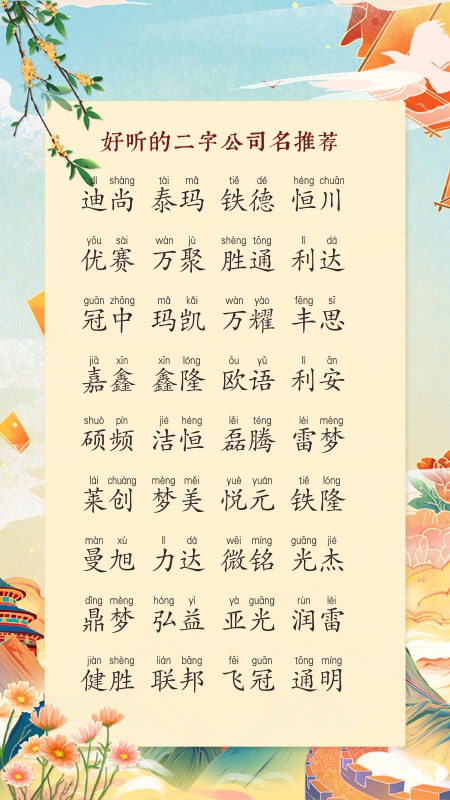 好听的二字公司名推荐
dí shàng tài mǎ tiě dé héng chuān
迪尚 泰玛 铁德 恒川
yōu sài wàn jù shèng tōng lì dá
优赛 万聚 胜通 利达
guān zhōng mǎ kǎi wàn yào fēng sī
冠中 玛凯 万耀 丰思
jiā xīn xīn lóng ōu yǔ lì ān
嘉鑫 鑫隆 欧语 利安
shuò pín jié héng lěi téng léi mèng
硕频 洁恒 磊腾 雷梦
lái chuàng mèng měi yuè yuán tiě lóng
莱创 梦美 悦元 铁隆
màn xù lì dá wēi míng guāng jié
曼旭 力达 微铭 光杰
dǐng mèng hóng yì yà guāng rùn léi
鼎梦 弘益 亚光 润雷
jiàn shèng lián bāng fēi guān tōng míng
健胜 联邦 飞冠 通明